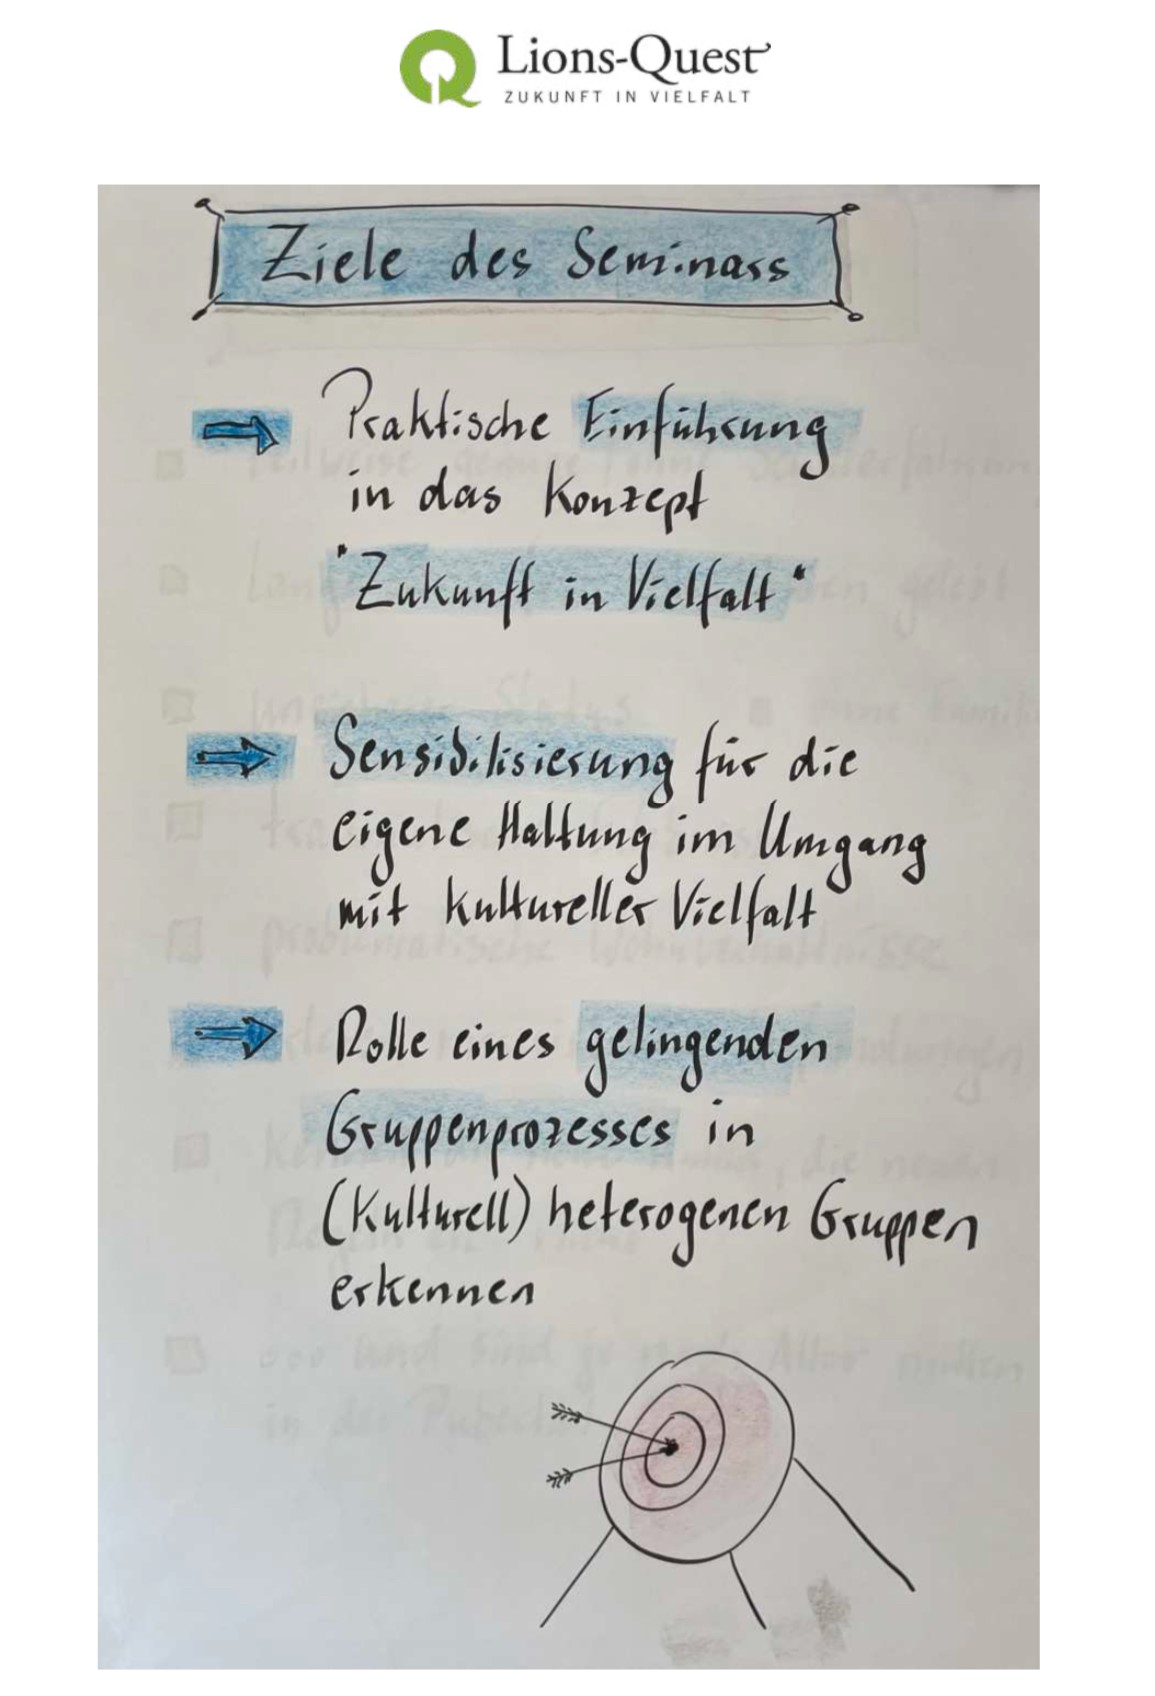 Lions-Quest
ZUKUNFT IN VIELFALT
Ziele des Seminars
Praktische Einführung
in das Konzept
"Zukunft in Vielfalt"
Sensibilisierung für die
eigene Haltung im Umgang
mit kultureller Vielfalt
Rolle eines gelingenden
Gruppenprozesses in
(kulturell) heterogenen Gruppen
erkennen